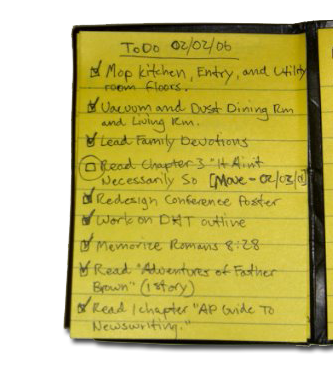 ToDo 02/02/06
Mop Kitchen, Entry, and Utility
room floors.
Vacuum and Dust Dining Rm
and Living Rm.
Lead Family Devotions
Read Chapter 3 "It Aint
Necessarily So [Move - 02/03/
Redesign Conference Poster
Work on outline
Memorize Romans 8:28
Read "Adventures of Father
Brown" (1 story)
Read 1 chapter "AP Guide To
Newswriting."